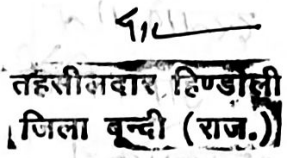 तहसीलदार हिण्डोली
जिला बून्दी (राज.)